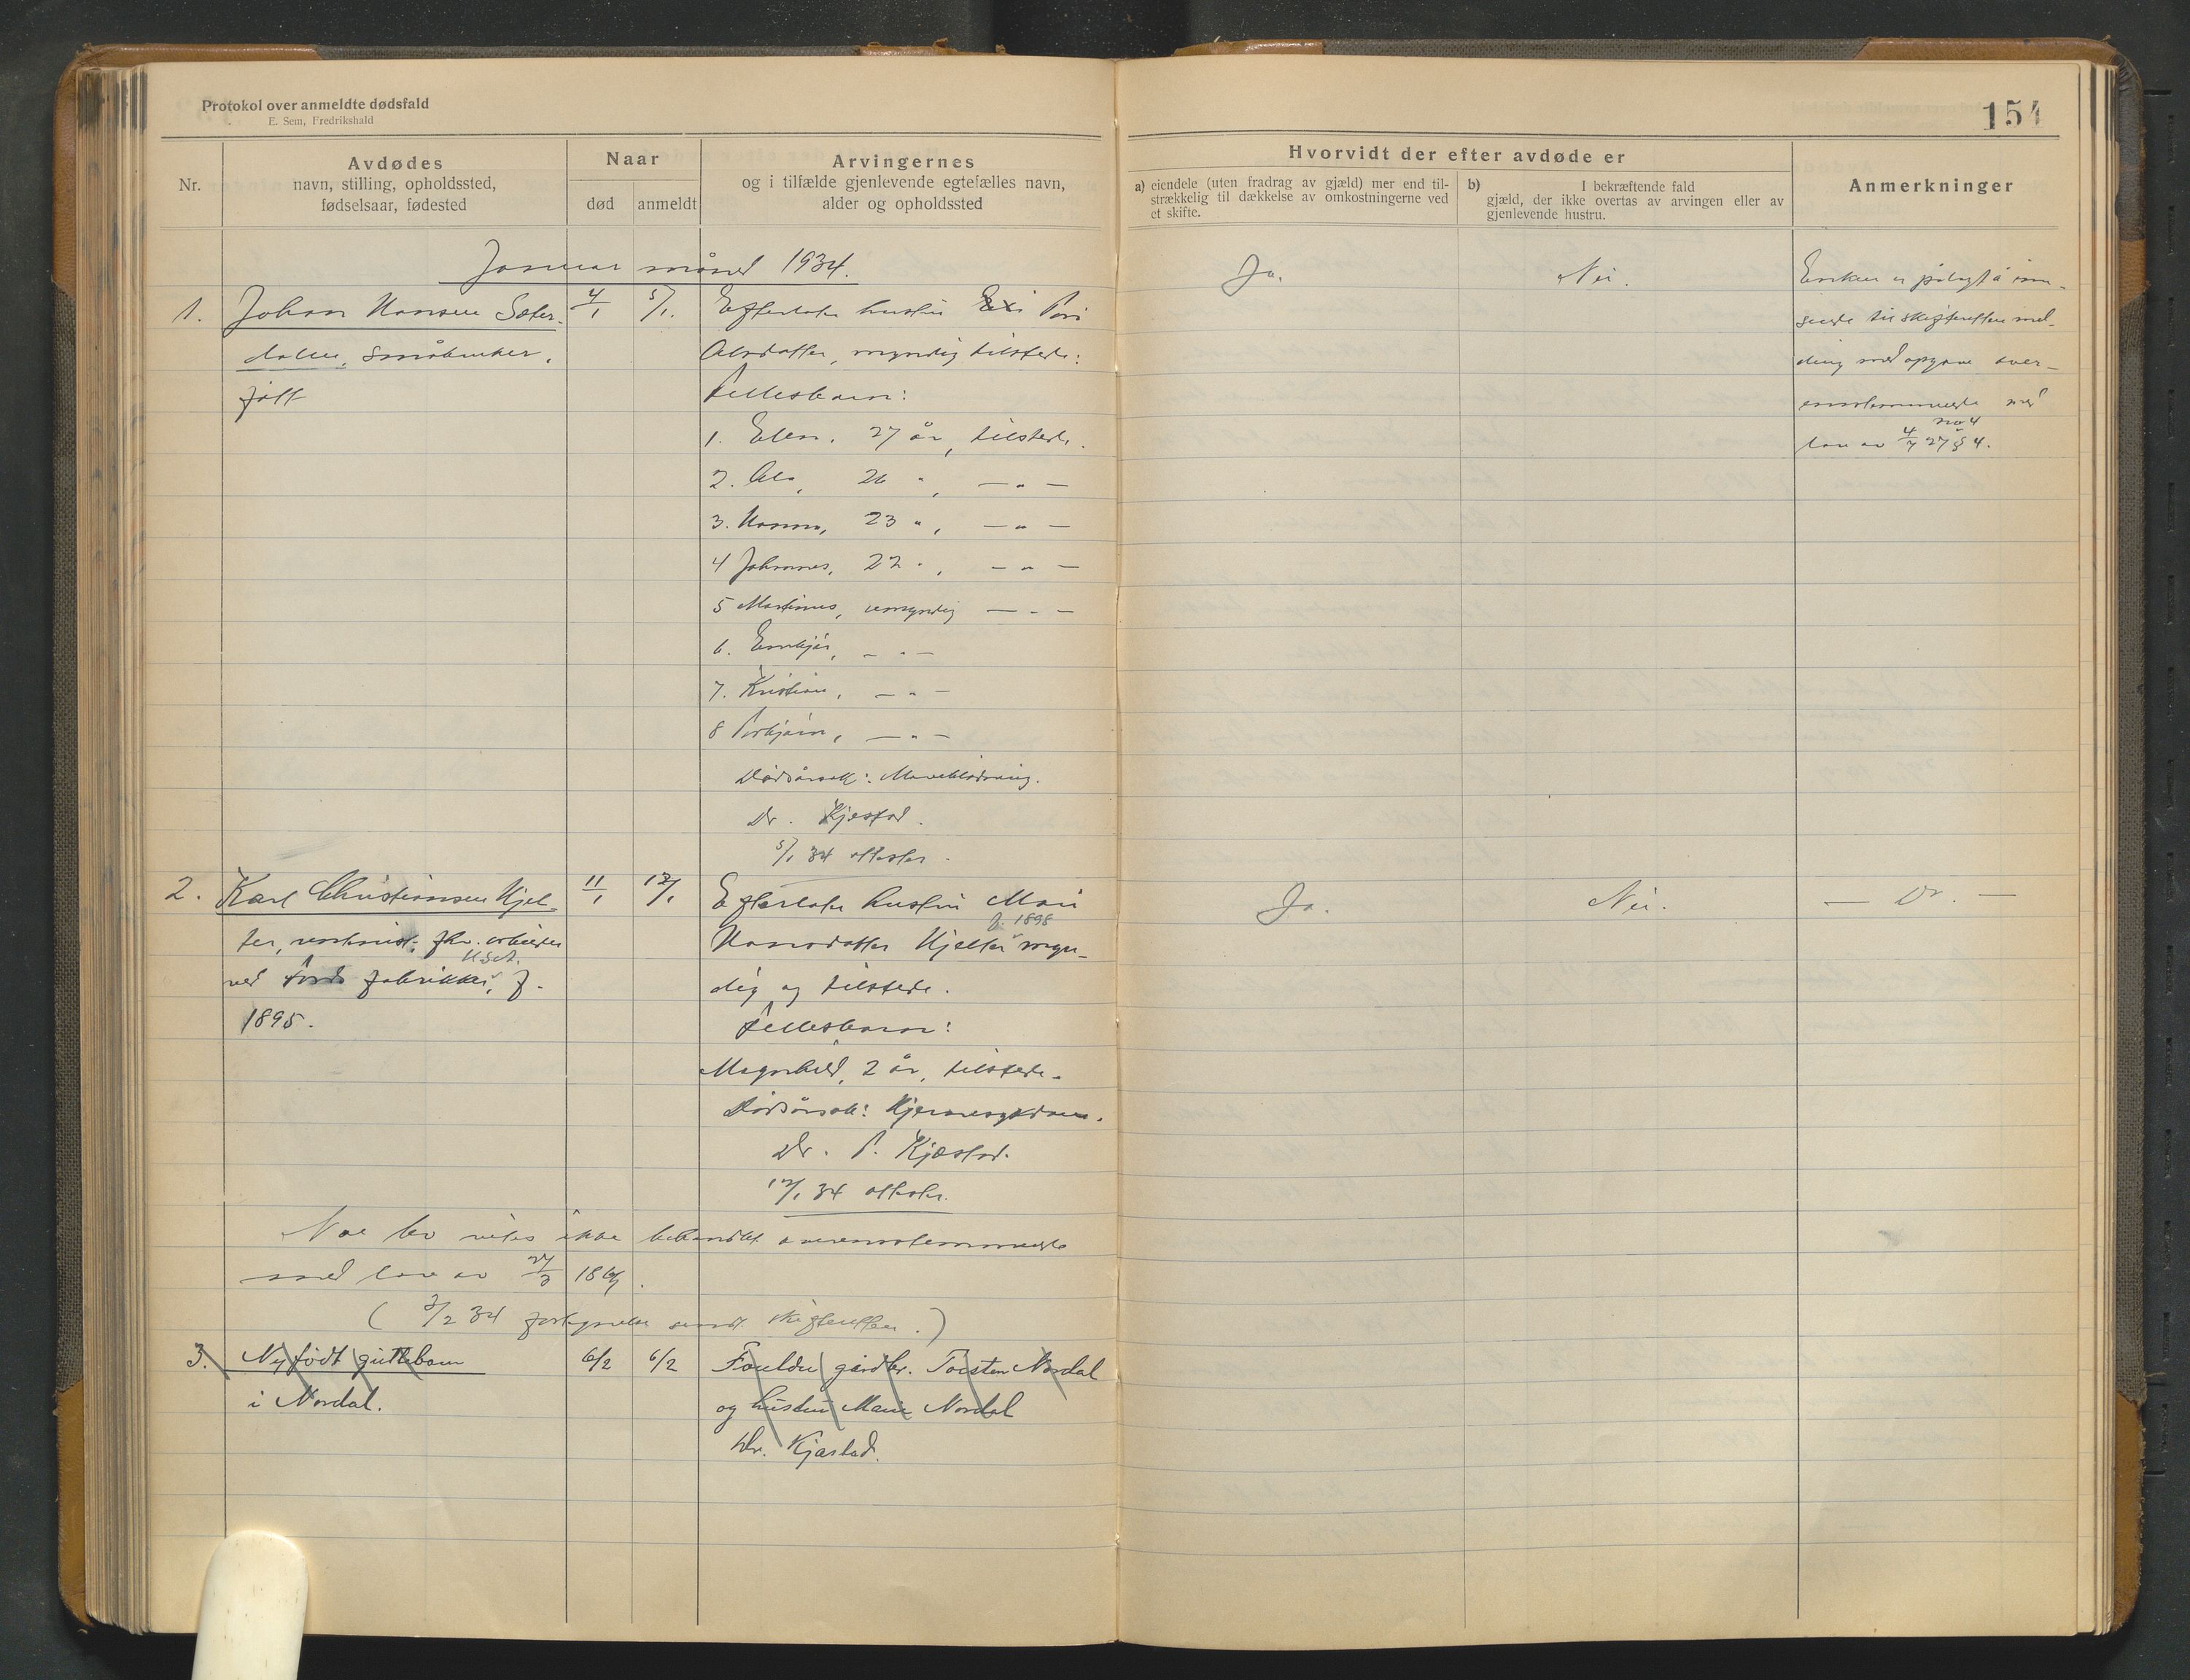 Protokol over anmeldte dødsfald
E. Sem, Fredrikshald
154
Nr.
Avdødes
navn, stilling, opholdssted,
fødselsaar, fødested
Naar
død
anmeldt
Arvingernes
og i tilfælde gjenlevende egtefælles navn,
alder og opholdssted
Hvorvidt der efter avdøde er
a) eiendele (uten fradrag av gjæld) mer end til-
strækkelig til dækkelse av omkostningerne ved
et skifte.
b) I bekræftende fald
gjæld, der ikke overtas av arvingen eller av
gjenlevende hustru.
Anmerkninger
Januar måned 1934.
1. Johan Hansen Sæter-
dalen, småbruker,
født
4/1
5/1.
Efterlate hustru Pori
Olsdatter, myndig tilstede:
Fellesbarn:
1. Elen, 27 år, tilstede.
2. Ola, 26 " , — " —
3. Hanna, 23 " , — " —
4 Johannes, 22 " , — " —
5 Martinus, umyndig — " —
6. — " —
7. Kristian, — " —
8 Torbjørn, — " —
Dødsårsak: Maveblødning.
Dr. Kjestad.
5/1 34 attester.
Ja.
Nei.
Enken er pålagt å inn-
sende til skifteretten mel-
ding med opgave over-
ensstemmende med
lov av 4/7 27 no 4 § 4.
2. Karl Christiansen Hjel-
ter, fhv. arbeider
ved Fords fabrikker, U.S.A. f.
1895.
11/1
12/1
Efterlate hustru Mari
Hansdatter Hjelter f. 1898 myn-
dig og tilstede.
Fellesbarn:
Magnhild, 2 år, tilstede.
Dødsårsak: Hjernesygdom.
Dr. P. Kjæstad.
12/1 34 attester.
Ja.
Nei.
— Do. —
ikke behandlet overensstemmende
med lov av 27/3 1869.
( 3/2 34 sendt skifteretten.)
3. Nyfødt guttebarn
i Nordal.
6/2
6/2
Foreldre gårdbr. Torsten Nordal
og hustru Marie Nordal
Dr. Kjæstad.